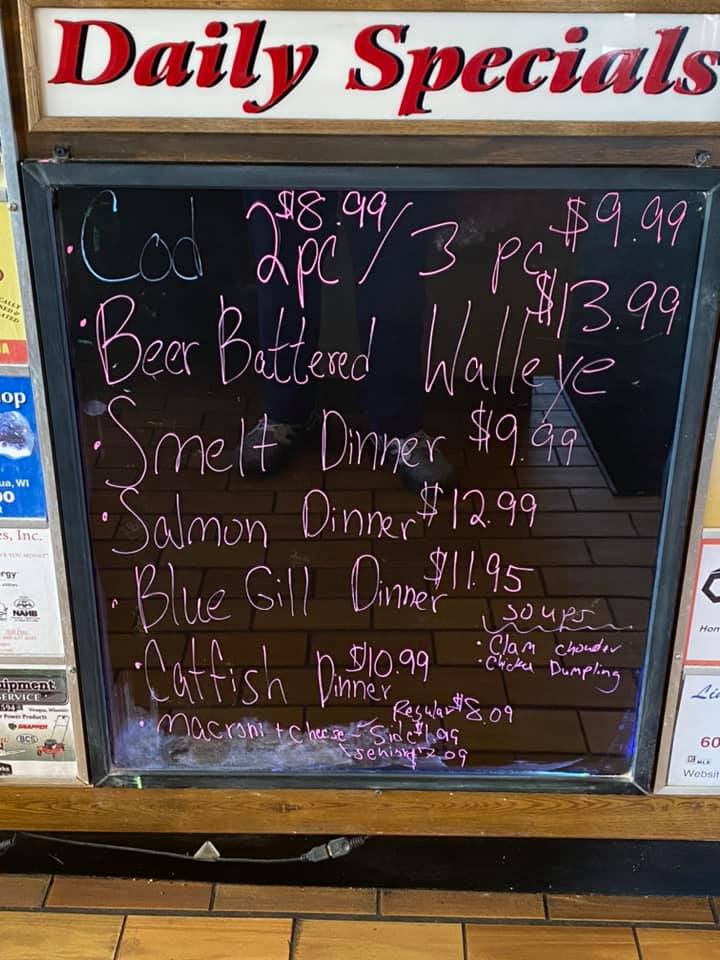 Daily Specials
• Cod $8.99 2pc / 3 pc $9.99
• Beer Battered Walleye $13.99
• Smelt Dinner $9.99
• Salmon Dinner $12.99
• Blue Gill Dinner $11.95
• Catfish Dinner $10.99
soups
• Clam chouder
• Chicken Dumpling
• Macroni + cheese - Regular $8.09
Side $1.99
Op
ua, WI
es, Inc.
NAHB
uipment
SERVICE
Power Products
SNAPPER
BCS
Hom
60
MLS
Websit